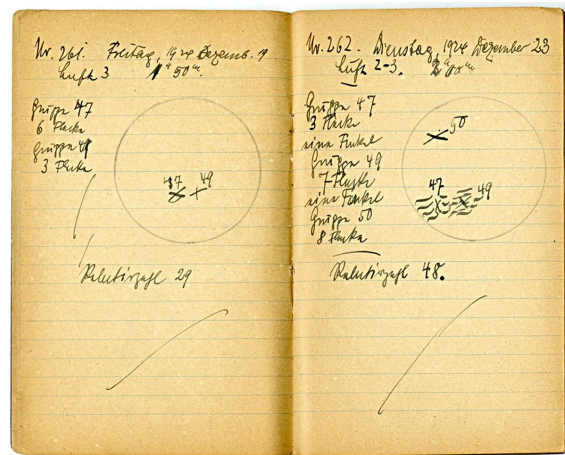 Nr. 261. Freitag, 1924 Dezemb. 19
Luft 3 1h 50m.
Gruppe 47
6 Flecke
Gruppe 49
3 Flecke
47 49
Relativzahl 29
Nr. 262. Dienstag, 1924 Dezember 23
Luft 2-3.
Gruppe 47
3 Flecke
eine Fackel
Gruppe 49
7 Flecke
eine Fackel
Gruppe 50
8 Flecke
50
47 49
Relativzahl 48.